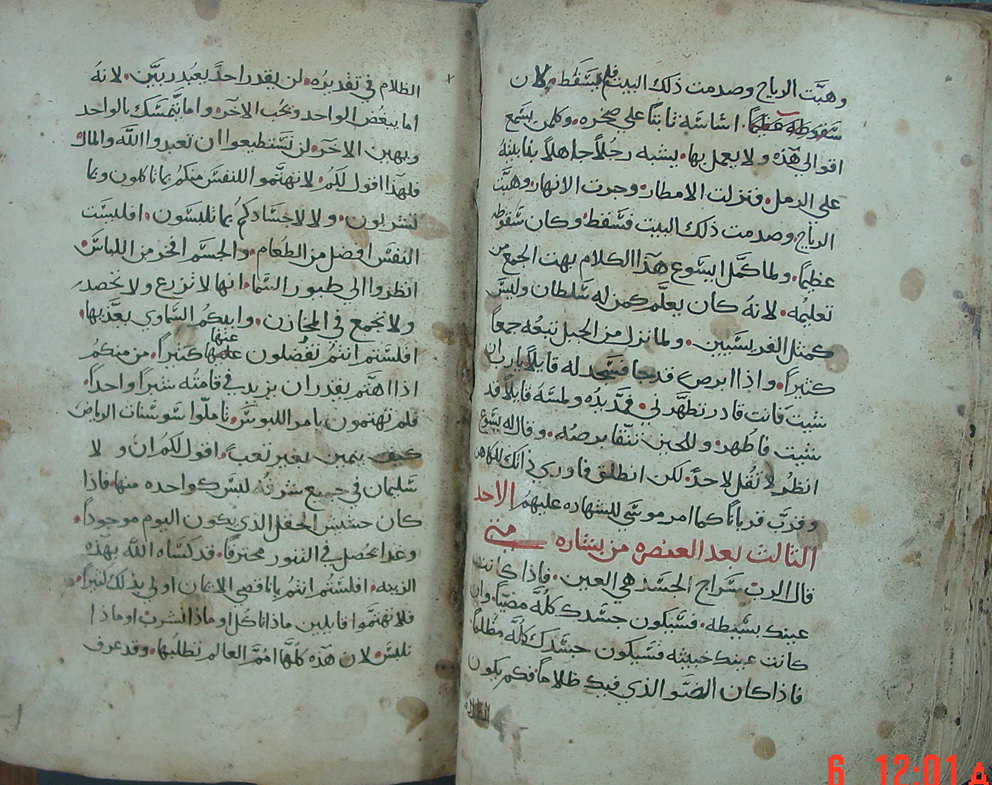 وهبَّت الرياح وصدمت ذلك البيت فلم يسقط لان
سقوطه عظيماً. اساسه ثابتاً على صخره. وكلمن يسمع
اقوالي هذه ولا يعمل بها. يشبه رجُلاً جاهلاً بنا بيته
على الرمل. فنزلت الامطار. وجرت الانهار. وهبَّت
الرياح. وصدمت ذلك البيت فسقط. وكان سقوطه
عظيماً. ولما كمَّل ايسوع هذا الكلام بهت الجمع من
تعليمُه. لانهُ كان يعلّم كمن له سلطان وليس
كمثل الفريسيين. ولما نزل من الجبل تبعُه جمعاً
كثيراً. واذا ابرص قد جا فسجد له قايلاً يارب ان
شيت فانت قادر تطهّرلي. فمدَّ يده ولمسَهُ قايلاً قد
شيت فاطهر. وللحين تنقا برصُه. وقال له يسوع
انظر لا تقُل لاحدٍ. لكن انطلق فاوري ذاتك للكاهن
وقرّب قرباناً كما امر موسى للشهاده عليهم الاحد
الثالث بعد العنصره من بشاره متى
قال الرب سراج الجسد هي العين. فاذا كانت
عينك بسيطه. فسيكون جسدك كلَّه مضيّاً. وان
كانت عينك خبيثه فسيكون جسدك كلَّه مظلماً.
فاذا كان الضَّو الذي فيك ظلاماً. فكم يكون
الظلام
الظلام في تقديرُه. لن يقدر احدٌ يعبُد ربّين. لانهُ
اما يبغُض الواحد ويُحب الاخر. واما يتمسّك بالواحد
ويهين الاخر. لن تستطيعوا ان تعبدوا الله والمال
فلهذا اقول لكمُ. لا تهتمّوا للنفس منكمُ بما تاكلون وبما
تشربون. ولا لاجسادكمُ بما تلبسون. افليست
النفس افضل من الطعام. والجسم افخر من اللباس.
انظروا الى طيور السما. انها لا تزرع ولا تحصد
ولا تجمع في المخازن. وابيكمُ السماوي يغذّيها.
افلستم انتم تفضُلون عليها عنها كثيراً. من منكمُ
اذا اهتَّم يقدر ان يزيد في قامته شبراً واحداً.
فلم تهتمون بامر اللبوس. تاملّوا سوسنات الرياض
كيف ينمين بغير تعب. اقول لكم ان ولا
سليمان في جميع شرفه لبس كواحده منها. فاذا
كان حشيش الحقل الذي يكون اليوم موجوداً.
وغداً يحصُل في التنور محترقاً. قد كساه الله بهذه
الزينه. افلستُم انتمُ ياناقصي الايمان اولى بذلك كثيراً.
فلا تهتمَّوا قايلين ماذا ناكُل او ماذا نشرب او ماذا
نلبس لان هذه كلَّها امُمَ العالم تطلُبها. وقد عرف
6 12:01 A